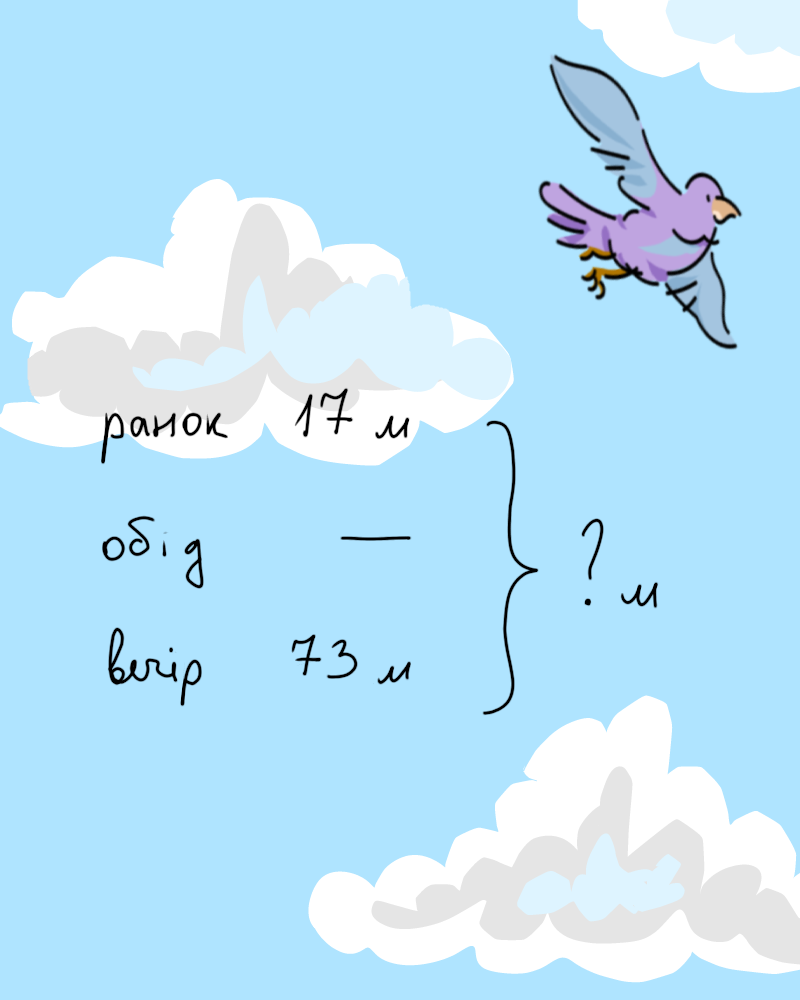 ранок 17 м
обід —
вечір 73 м
? м